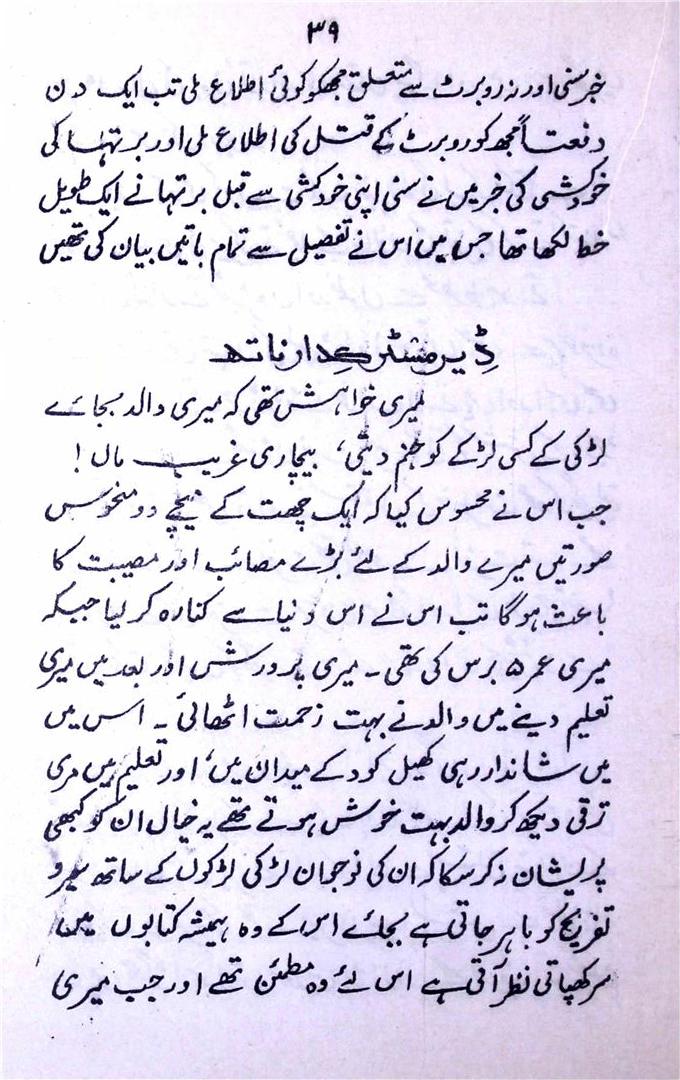 ۳۹
خبر سنی اور نہ روبرٹ سے متعلق مجھکو کوئی اطلاع ملی تب ایک دن
دفعتاً مجھ کو روبرٹ کے قتل کی اطلاع ملی اور برتہا کی
خودکشی کی خبر میں نے سنی اپنی خودکشی سے قبل برتہا نے ایک طویل
خط لکھا تھا جس میں اس نے تفصیل سے تمام باتیں بیان کی تھیں
ڈیر مسٹر کدار ناتھ
میری خواہش تھی کہ میری والدہ بجائے
لڑکی کے کسی لڑکے کو جنم دیتی، بیچاری غریب ماں!
جب اس نے محسوس کیا کہ ایک چھت کے نیچے دو منحوس
صورتیں میرے والد کے لئے بڑے مصائب اور مصیبت کا
باعث ہوگا تب اس نے اس دنیا سے کنارہ کر لیا جبکہ
میری عمر ۵ برس کی تھی۔ میری پرورش اور بعد میں میری
تعلیم دینے میں والد نے بہت زحمت اٹھائی۔ اس میں
میں شاندار رہی کھیل کود کے میدان میں، اور تعلیم میں مری
ترقی دیکھ کر والد بہت خوش ہوتے تھے یہ خیال ان کو کبھی
پریشان نہ کر سکا کہ ان کی نوجوان لڑکی لڑکوں کے ساتھ سیر و
تفریح کو باہر جاتی ہے بجائے اس کے وہ ہمیشہ کتابوں میں
سر کھپاتی نظر آتی ہے اس لئے وہ مطمئن تھے اور جب میری